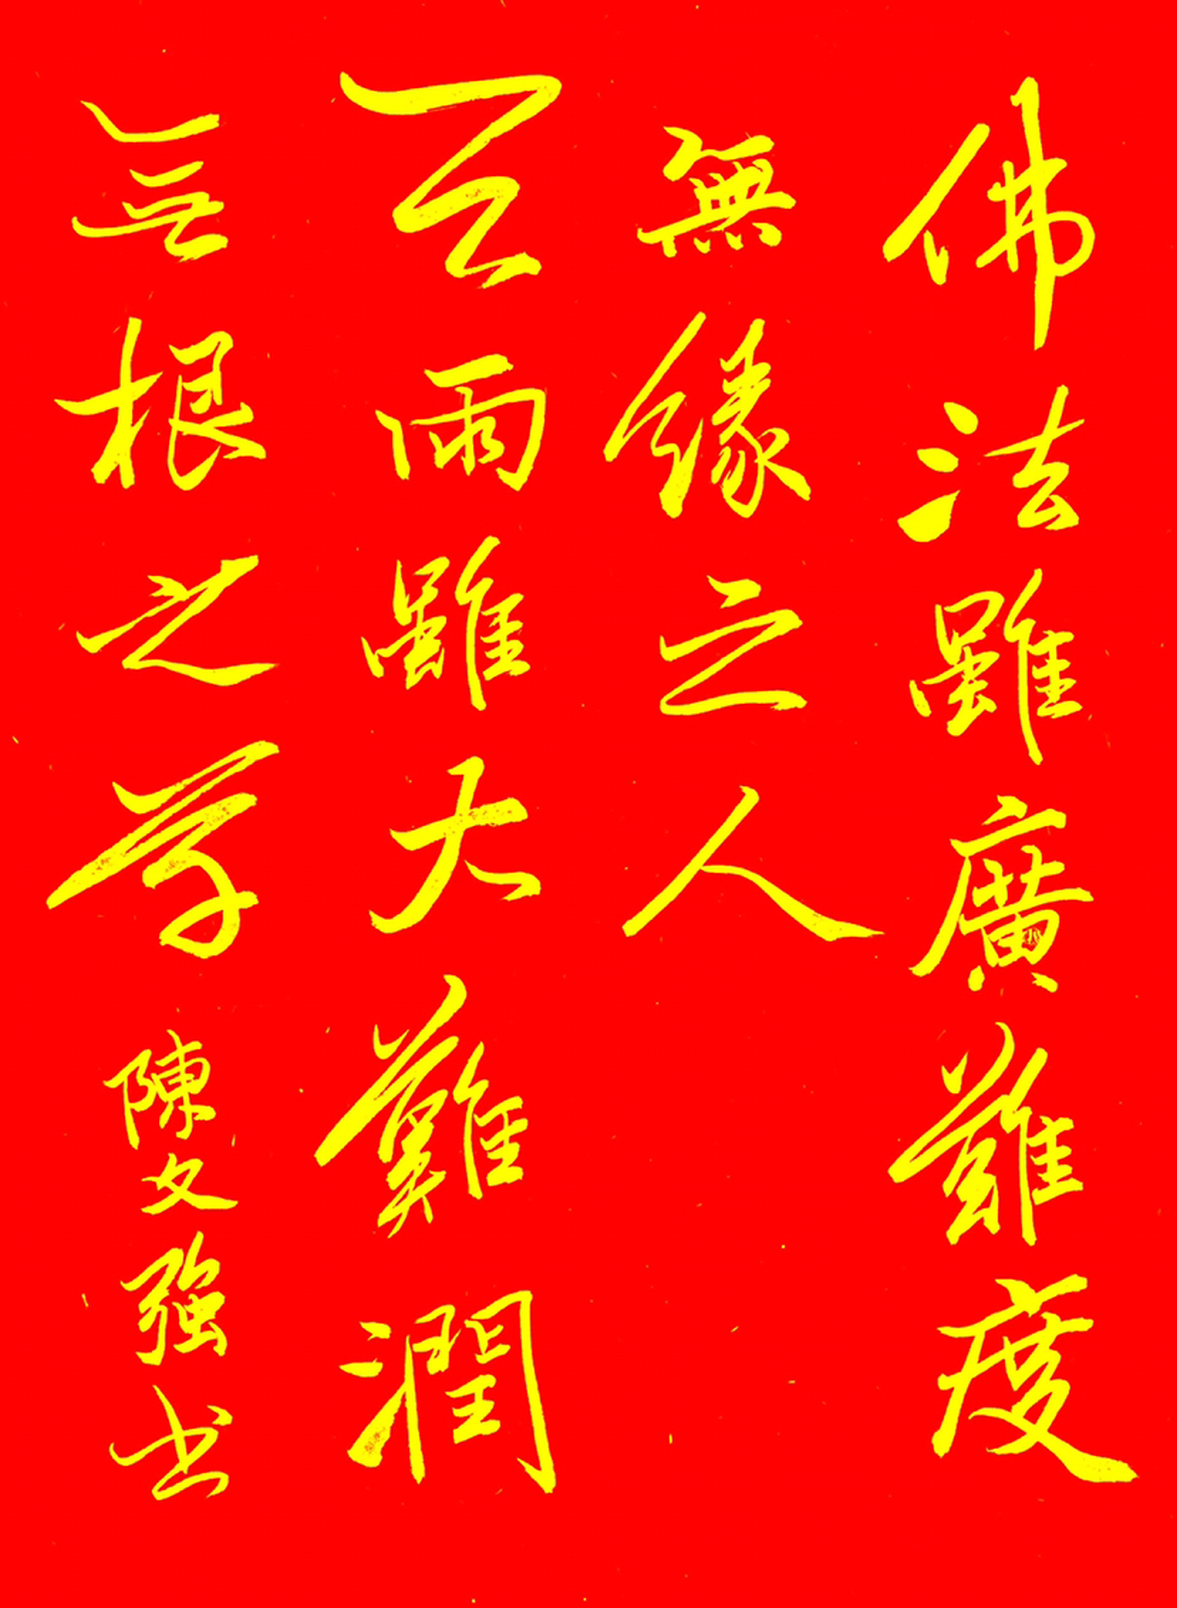 佛法雖廣難度
無緣之人
天雨雖大難潤
無根之草
陳文強书